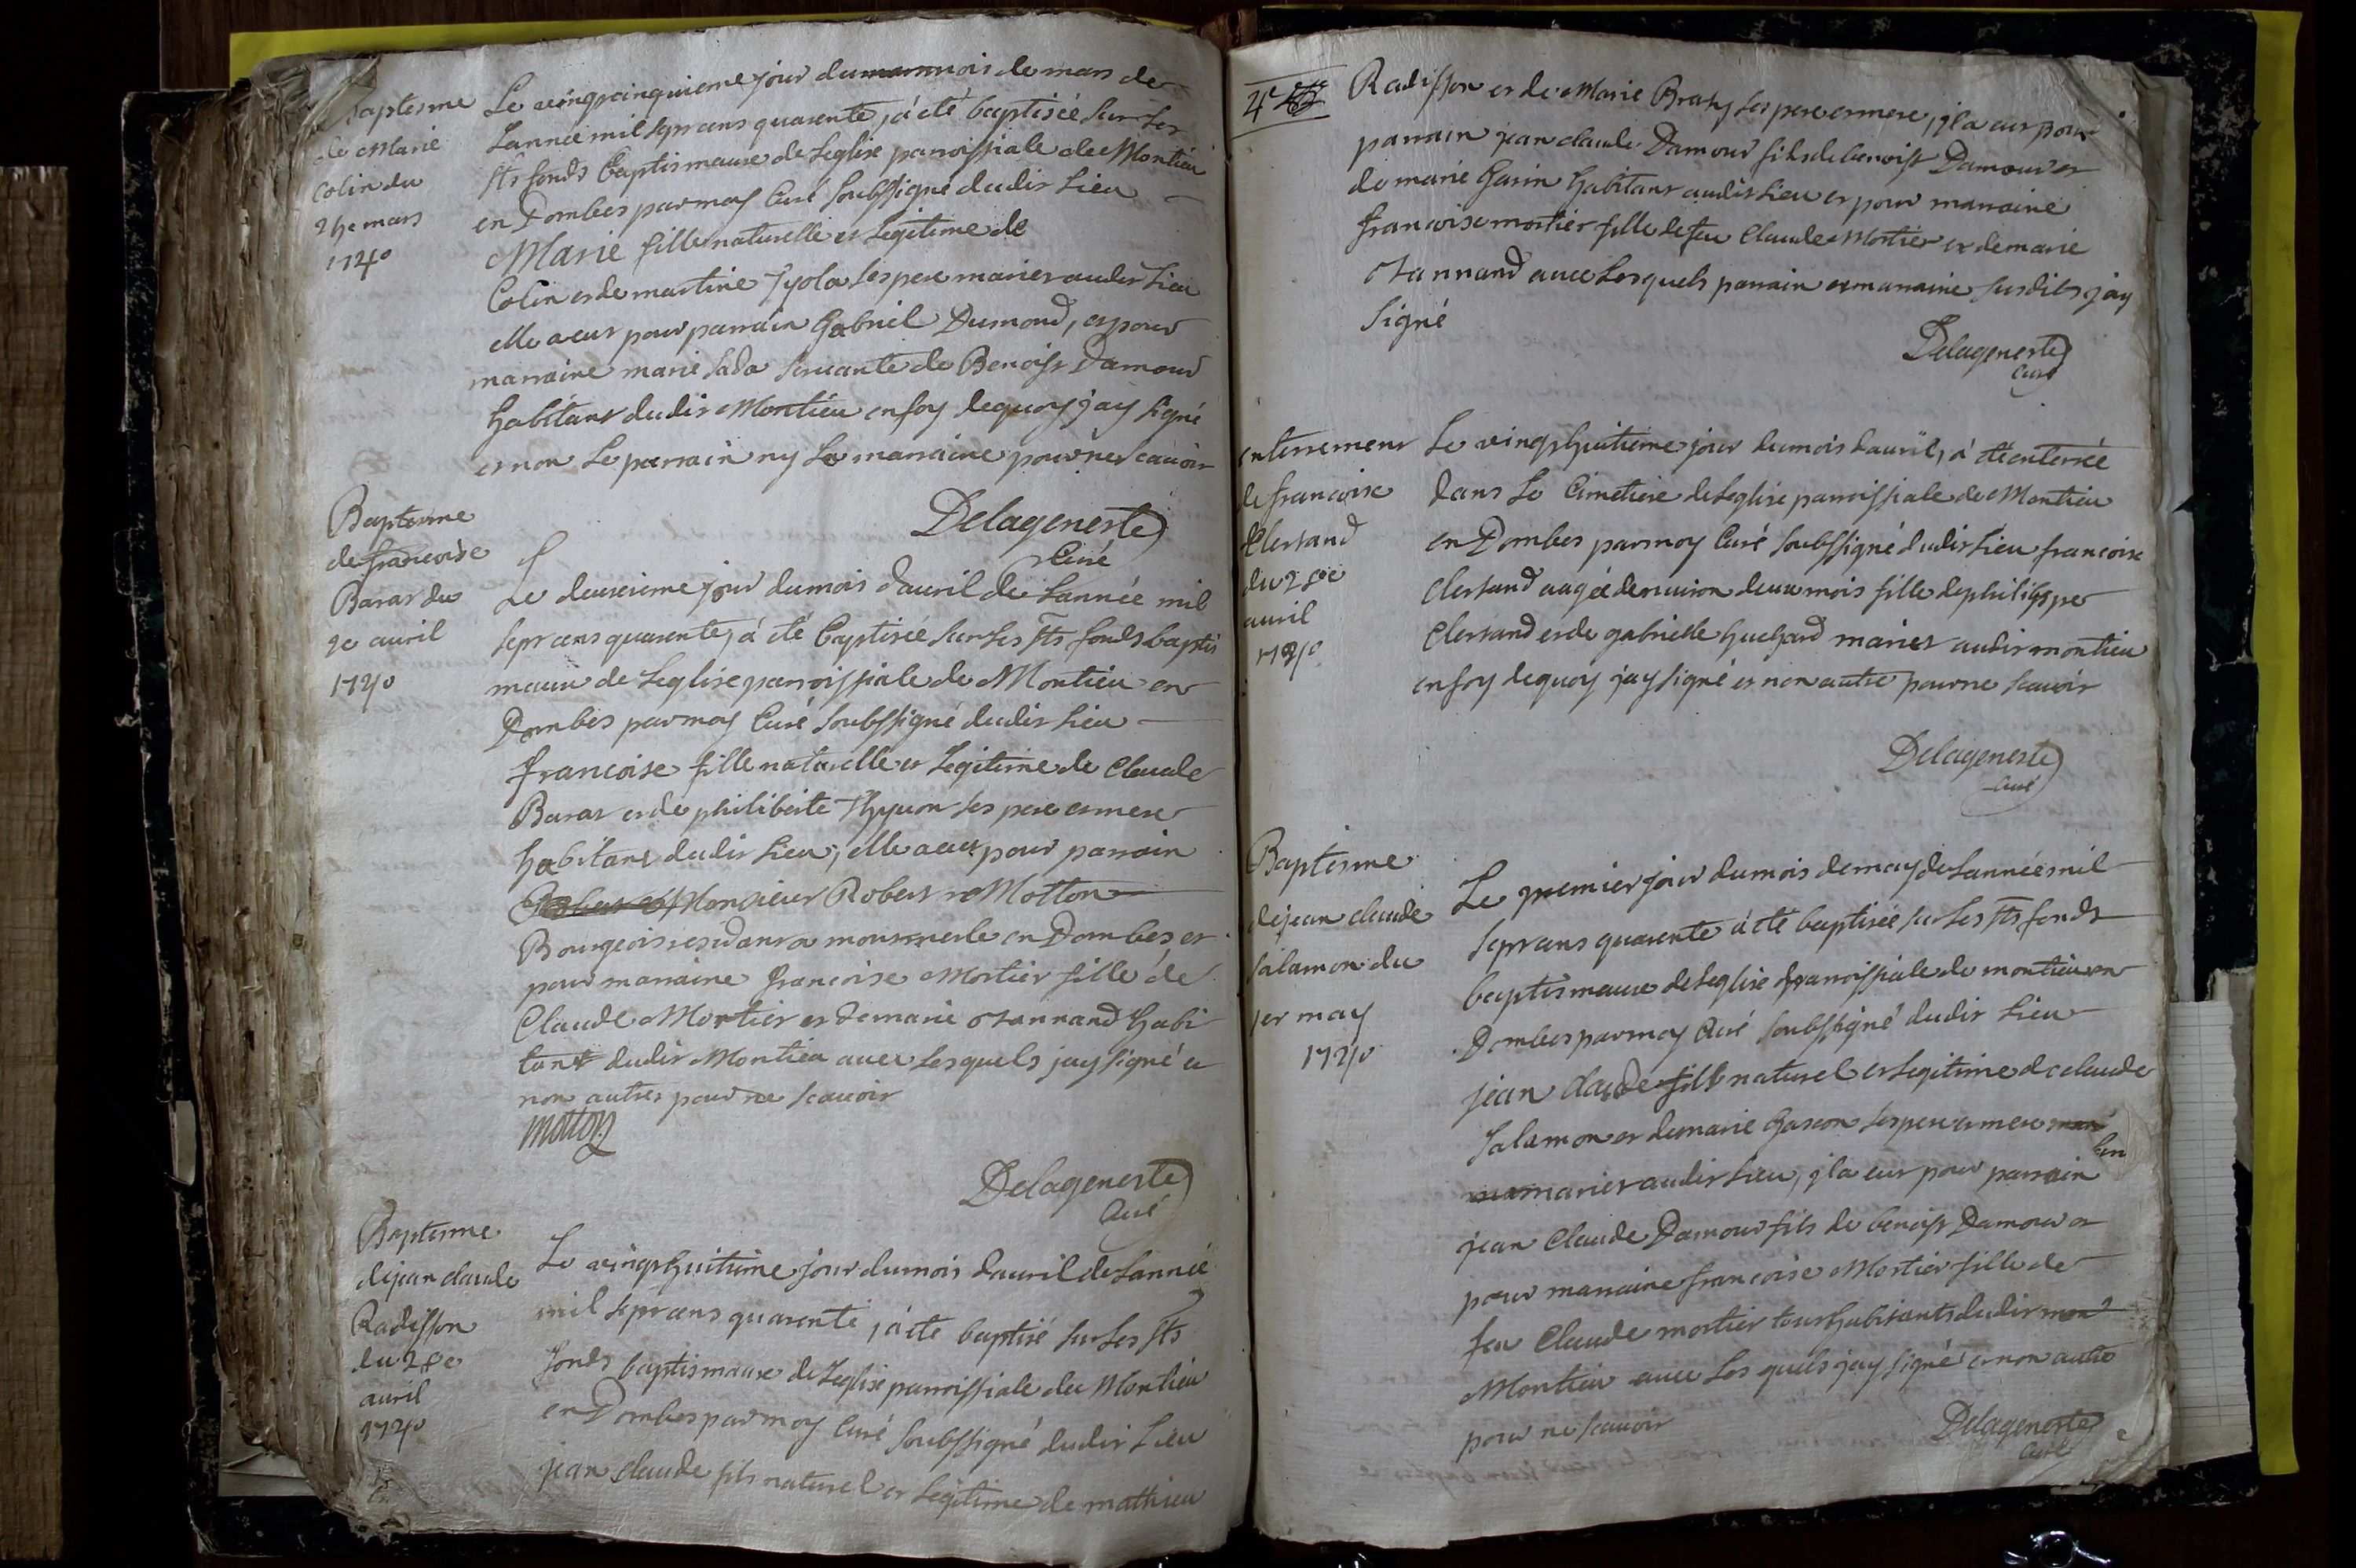 Baptesme
de Marie
Colin du
25e mars
1740
Le vingtcinquieme jour du mois de mars de
Lannée mil sept cens quarente, á été baptisée sur Les
Sts fonds Baptismaux de Leglise parroissiale de Montieu
en Dombes par moy Curé soubssigné dudit Lieu
Marie fille naturelle et Legitime de
Colin et de martine Tyola ses pere mariez audit Lieu
elle a eut pour parrain Gabriel Dumond, et pour
marraine marie Sada servante de Benoist Damour
habitant dudit Montieu en foy dequoy jay signé
et non Le parrain ny La marraine pour ne scavoir
Delageneste
Curé
Baptesme
de francoise
Barat du
2e avril
1740
Le deuxieme jour du mois davril de Lannée mil
sept cens quarente, á été Baptisée sur Les Sts fonds baptis
maux de Leglise parroissiale de Montieu en
Dombes par moy Curé soubssigné dudit Lieu
francoise fille naturelle et Legitime de Claude
Barat et de philiberte Thyvon ses pere et mere
habitant dudit Lieu, elle a eut pour parrain
Monsieur Robert Motton
Bourgeois residant a montmerle en Dombes, et
pour marraine francoise Mortier fille de
Claude Mortier et de marie Jannand habi
tant dudit Montieu avec Lesquels jay signé et
non autres pour ne scavoir
motton
Delageneste
Curé
Baptesme
de jean claude
Radisson
du 28e
avril
1740
Le vingthuitieme jour du mois davril de Lannée
mil sept cens quarente, á été baptisé sur Les Sts
fonds baptismaux de Leglise parroissiale de Montieu
en Dombes par moy Curé soubssigné dudit Lieu
jean claude fils naturel et Legitime de mathieu
4e
Radisson et de Marie Brazy ses pere et mere, jl a eut pour
parrain jean claude Damour fils de benoist Damour et
de marie Garin habitant audit Lieu et pour marraine
francoise mortier fille de feu Claude Mortier et de marie
Jannand avec Lesquels parrain et marraine susdits jay
signé
Delageneste
Curé
enterrement
de francoise
Clertand
du 28e
avril
1740
Le vingthuitieme jour du mois davril, á été enterrée
dans Le Cimetiere de Leglise parroissiale de Montieu
en Dombes par moy Curé soubssigné dudit Lieu francoise
Clertand aagée denviron deux mois fille de philippe
Clertand et de gabrielle Guchard mariez audit montieu
en foy dequoy jay signé et non autre pour ne scavoir
Delageneste
Curé
Baptesme
de jean claude
Salamon du
1er may
1740
Le premier jour du mois de may de Lannée mil
sept cens quarente á été baptisée sur Les Sts fonds
baptismaux de Leglise parroissiale de montieu en
Dombes par moy Curé soubssigné dudit Lieu
jean claude fille naturel et Legitime de claude
Salamon et de marie Gascon ses pere et mere
mariez audit Lieu, jl a eut pour parrain
jean Claude Damour fils de benoist Damour et
pour marraine francoise Mortier fille de
feu Claude mortier tous habitants dudit mon
Montieu avec Les quels jay signé et non autre
pour ne scavoir
Delageneste
Curé